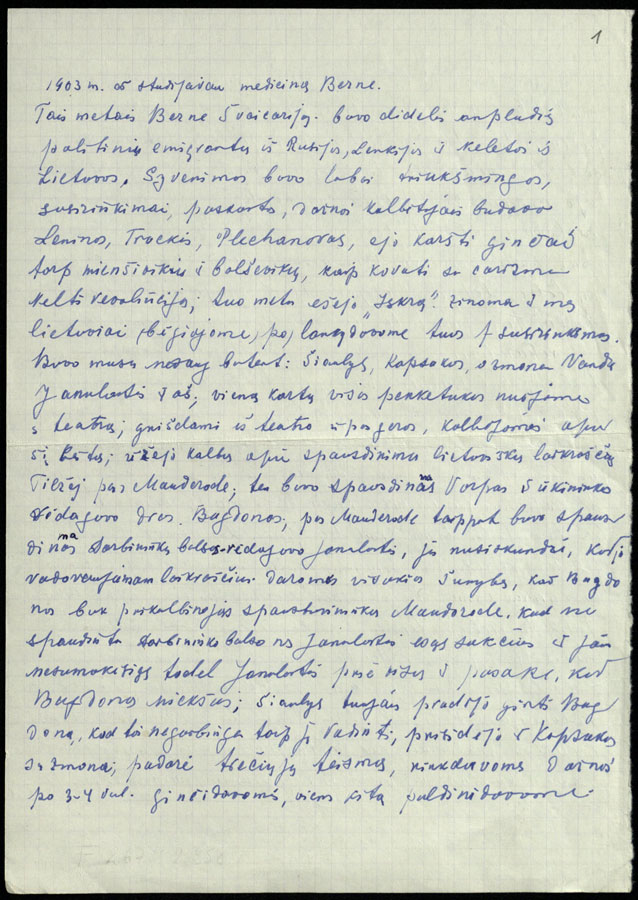 1
1903 m. aš studijavau mediciną Berne.
Tais metais Berne Šveicarijoj buvo didelis anpludis
politinių emigrantų iš Rusijos, Lenkijos ir keletas iš
Lietuvos. Gyvenimas buvo labai triukšmingas,
susirinkimai, paskaitos, dažnai kalbėtojais budavo
Leninas, Trockis, Plechanovas, ejo karšti ginčai
tarp menševikų ir bolševikų, kaip kovoti su carizmu
kelti revoliuciją; tuo metu ešejo "Iskra". Žinoma ir mes
lietuviai bėgiojome, po lankydavome tuos susirinkimus.
Buvo musų nedaug butent: Šiaulys, Kapsukas, su žmona Vanda
Janulaitis ir aš; vieną kartą visas penketukas nuėjome
į teatrą; grįšdami iš teatro, kalbėjomės apie
šį tą; užejo kalba apie spausdinimą lietuviškų laikraščių
Tilžėj pas Mauderode; ten buvo spausdinamas Varpas ir Ukininkas
redagavo dras. Bagdonas, pas Mauderode tarppat buvo spaus-
dinamas Darbininkų balsas redagavo Janulaitis, jis nusiskundė, kad jo
vadovaujamam laikraščiui daromos visokios šunybės, kad Bagdo
nas buk prikalbinėjęs spaustuvininką Mauderode, kad ne
spaudintu Darbininko balso nes Janulaitis esąs sukčius ir jam
nesumokėsiąs todel Janulaitis ir pasakė, kad
Bagdonas niekšas; Šiaulys tuojau pradėjo ginti Bag
doną, kad tai negarbinga taip jį vadinti, prisidejo ir Kapsukas
su žmona; padarė trečiųjų teismą, rinkdavomės dažnai
po 3-4 val. ginčidavomės, viens kitą